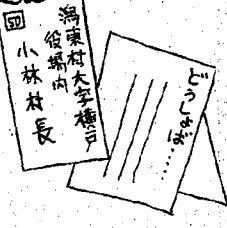 潟東村大字横戸
役場内
小林村長
どうしよば……